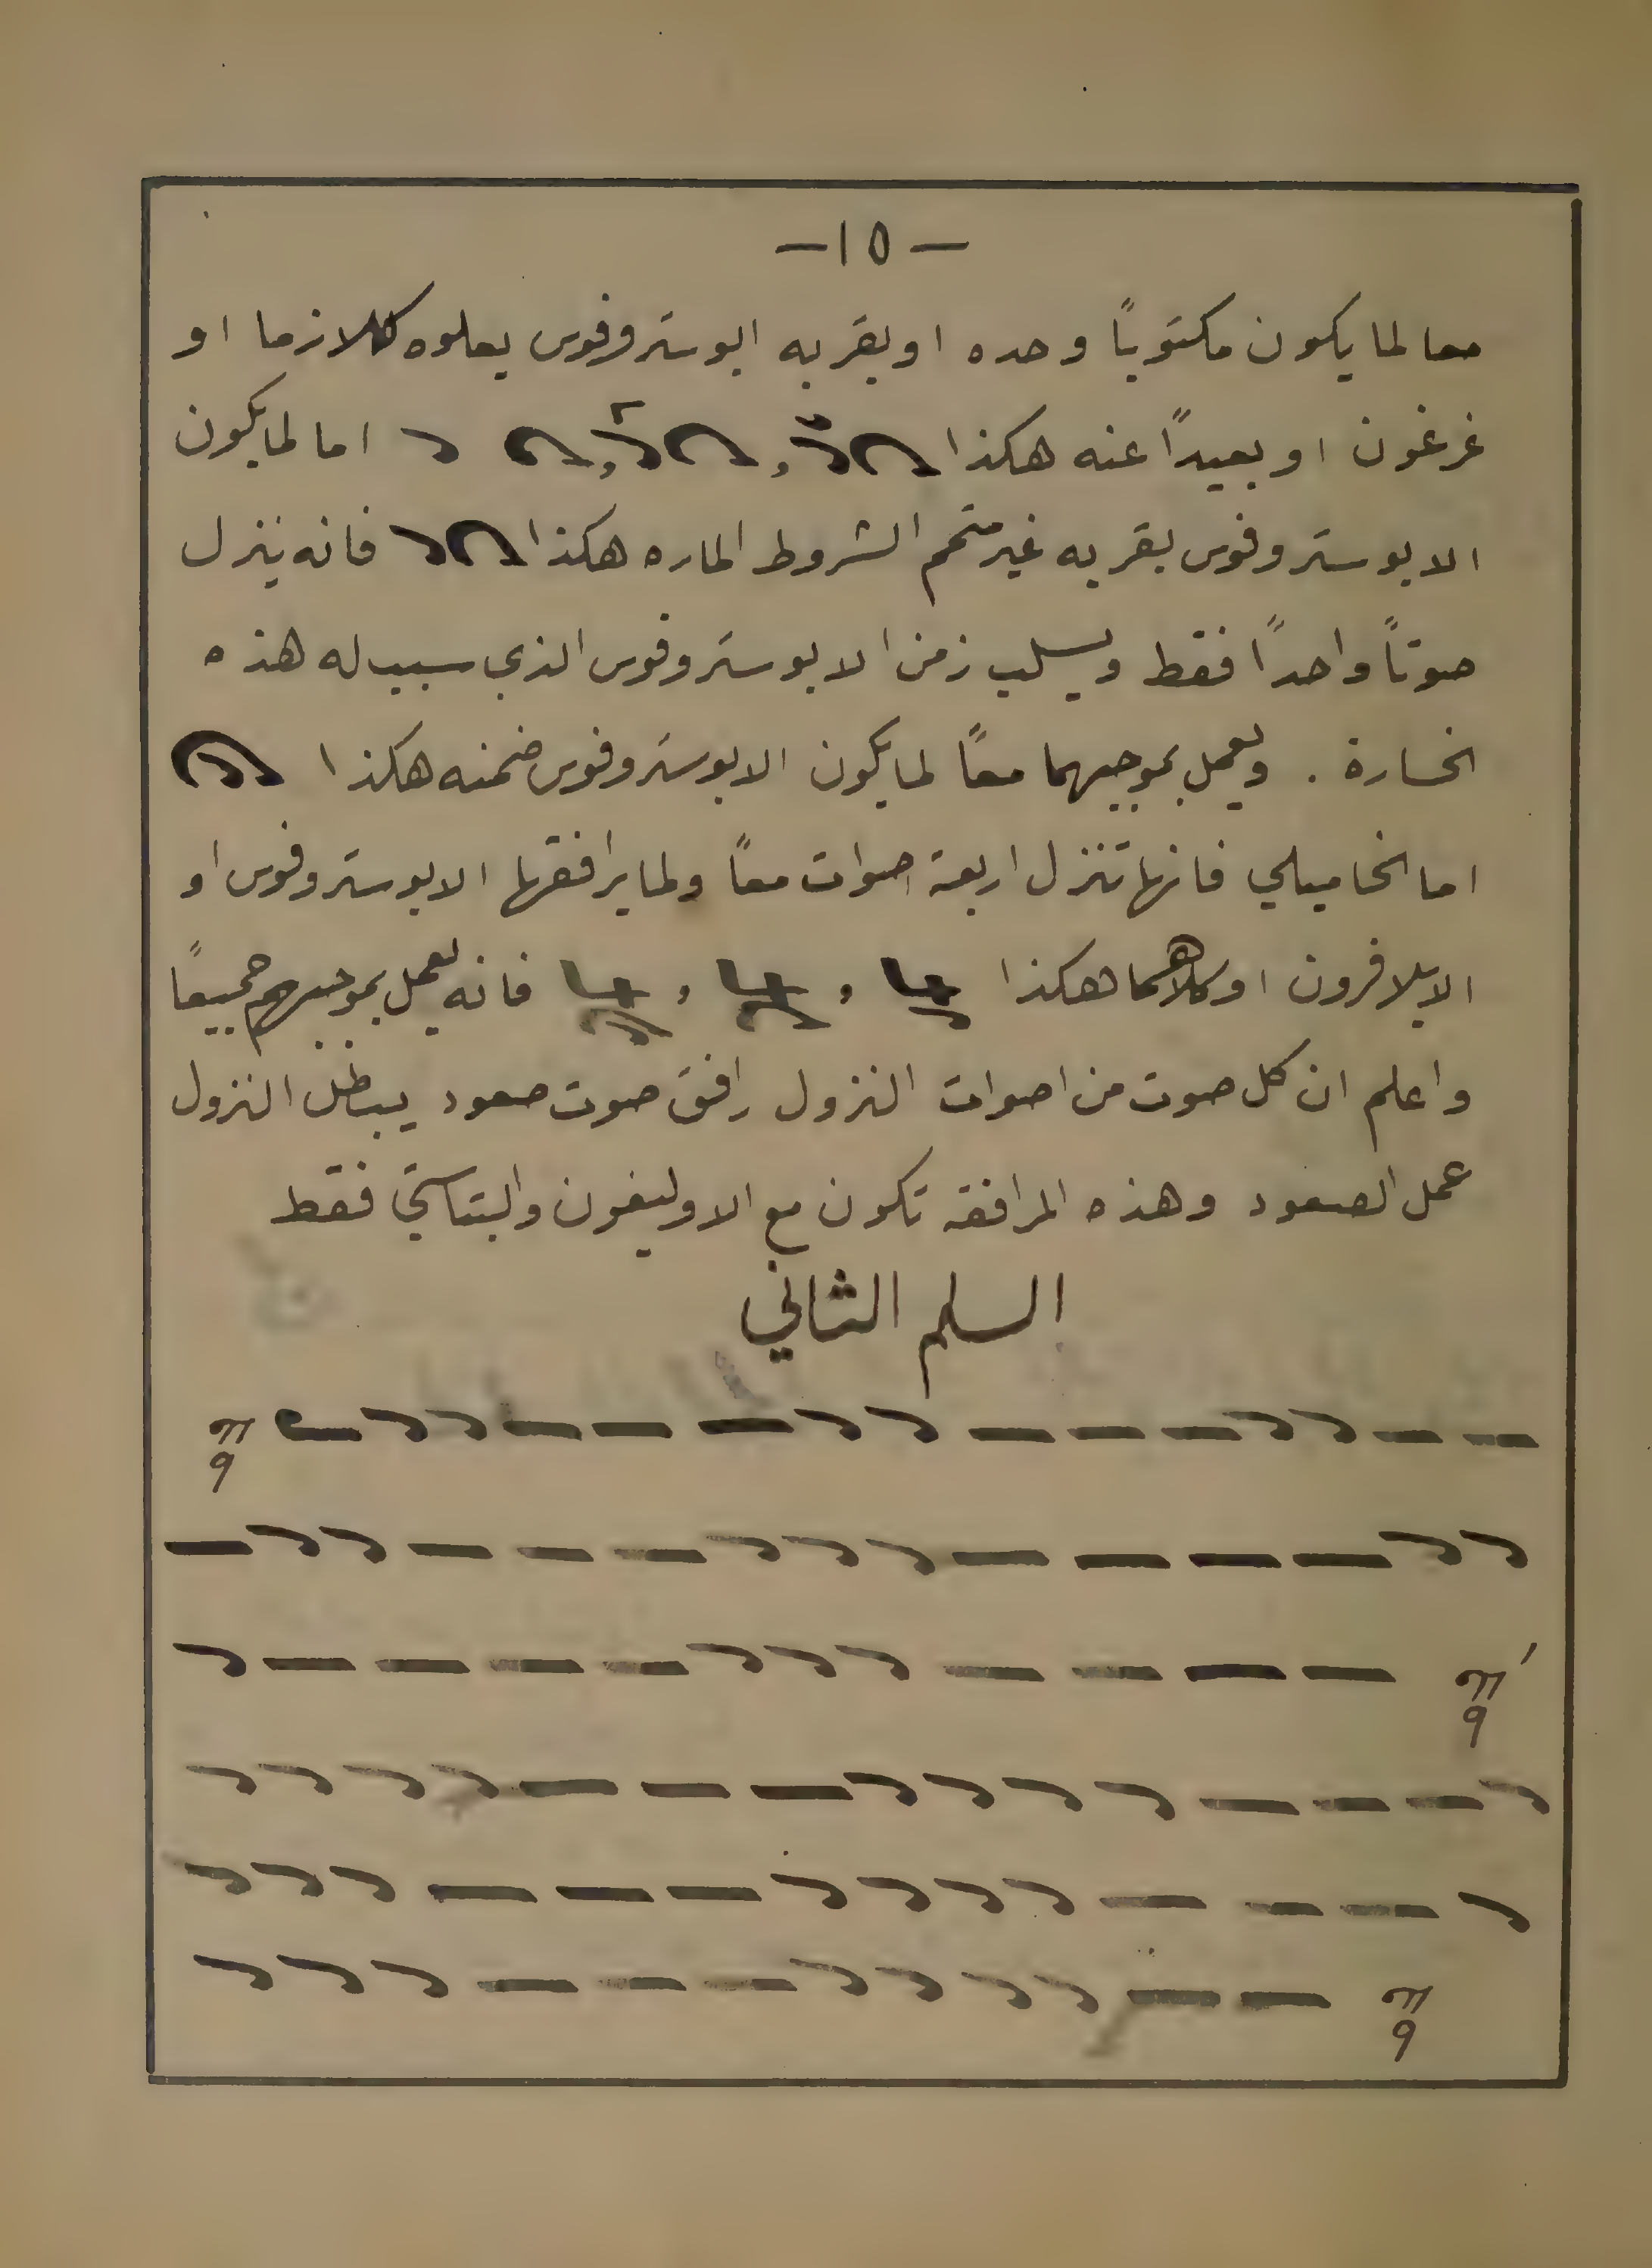 - ١٥ -
معا لما يكون مكتوباً وحده او بقربه ابوستروفوس يعلوه كلازما او
غرغون او بعيداً عنه هكذا اما لما يكون
الابوستروفوس بقربه غير متمم الشروط الماره هكذا فانه ينزل
صوتاً واحداً فقط ويسلب زمن الابوستروفوس الذي سبب له هذه
الخسارة . ويعمل بموجبهما معاً لما يكون الابوستروفوس ضمنه هكذا
اما الخاميلي فانها تنزل اربعة اصوات معاً ولما يرافقها الابوستروفوس او
الايلافرون او كلاهما هكذا فانه يعمل بموجبهم جميعاً
واعلم ان كل صوت من اصوات النزول رافق صوت صعود يبطل النزول
عمل الصعود وهذه المرافقة تكون مع الاوليغون والبتاستي فقط
السلم الثاني